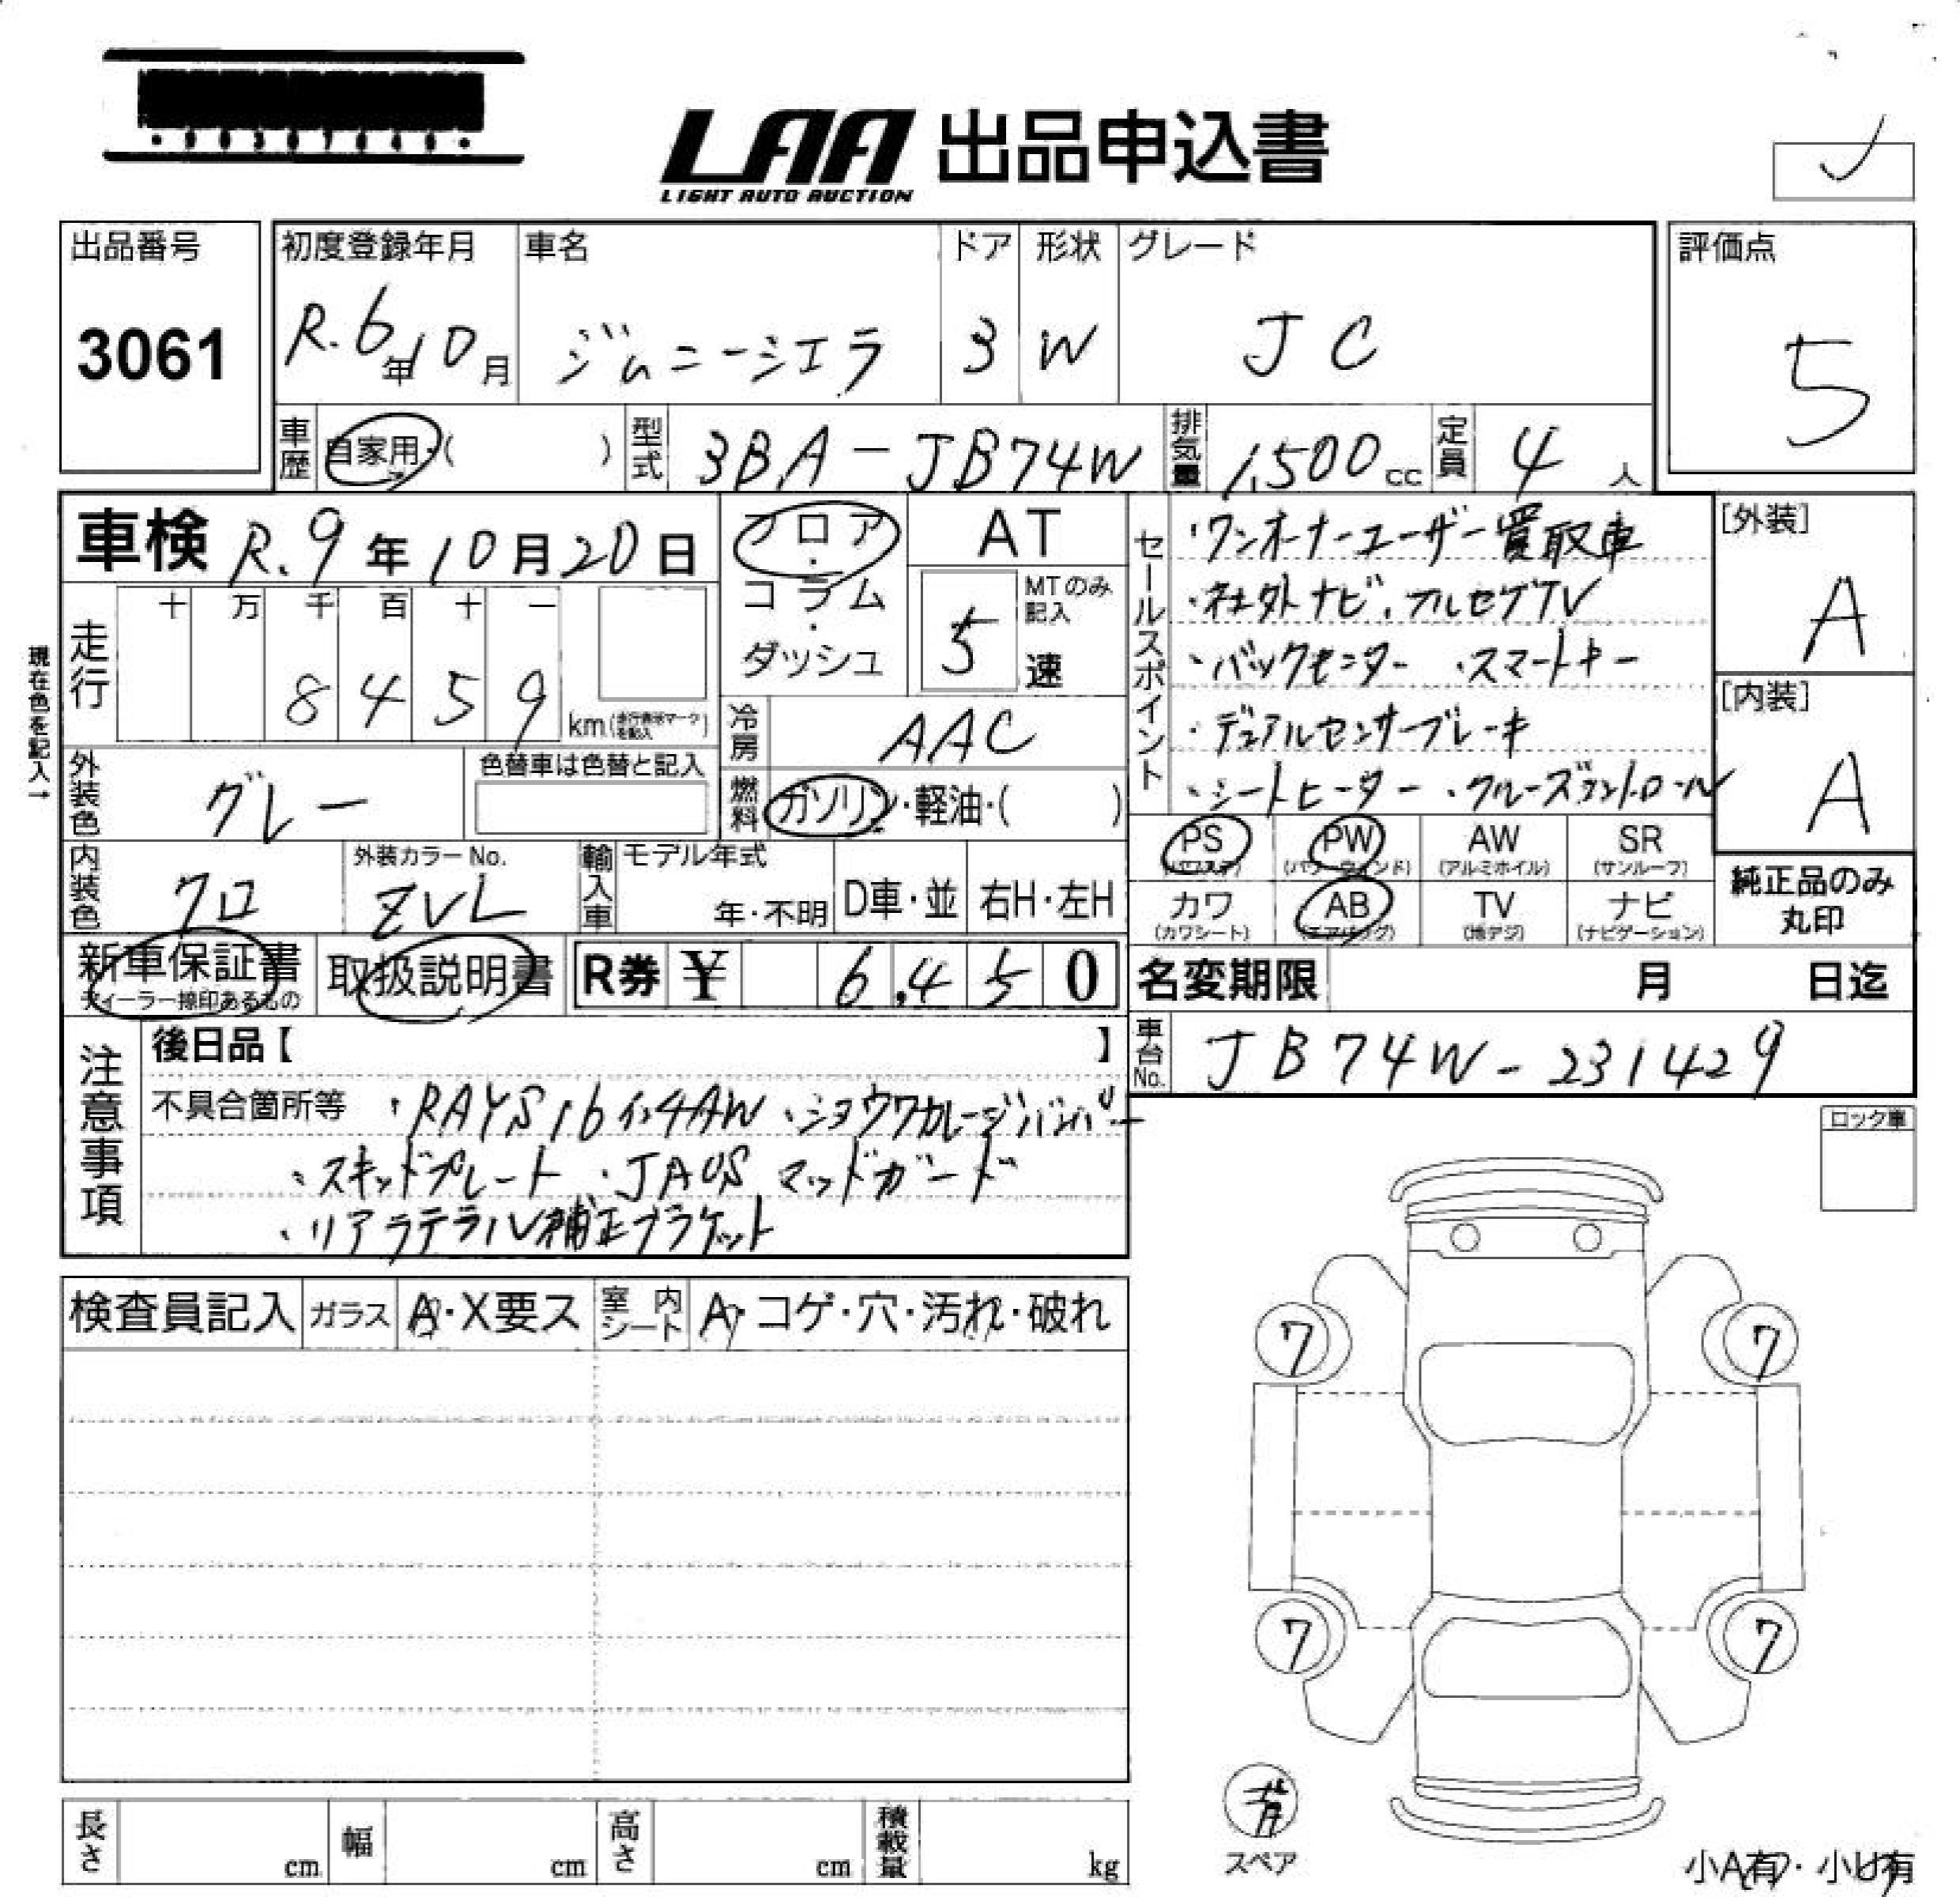 LAA 出品申込書
LIGHT AUTO AUCTION
出品番号
3061
初度登録年月
R.6年10月
車名
ジムニーシエラ
ドア
3
形状
W
グレード
JC
評価点
5
車歴 自家用・( )
型式 3BA-JB74W
排気量 1,500cc
定員 4人
車検 R.9年10月20日
フロア・コラム・ダッシュ
AT
5速 MTのみ記入
現在色を記入→
走行
十 万 千 百 十 一
8459 km(走行表示マークを記入)
冷房 AAC
燃料 ガソリン・軽油・( )
外装色 グレー
色替車は色替と記入
内装色 クロ
外装カラーNo. ZVL
輸入車 モデル年式 年・不明 D車・並 右H・左H
新車保証書
ディーラー捺印あるもの
取扱説明書
R券 ¥ 6,450
セールスポイント
・ワンオーナーユーザー買取車
・社外ナビ、フルセグTV
・バックモニター ・スマートキー
・デュアルセンサーブレーキ
・シートヒーター ・クルーズコントロール
[外装]
A
[内装]
A
PS (パワステ) PW (パワーウィンド) AW (アルミホイル) SR (サンルーフ)
カワ (カワシート) AB (エアバッグ) TV (地デジ) ナビ (ナビゲーション)
純正品のみ
丸印
名変期限 月 日迄
車台No. JB74W-231429
注意事項
後日品【 】
不具合箇所等 ・RAYS16インチAW ・ショウワガレージバンパー
・スキッドプレート ・JAOS マッドガード
・リアラテラル補正ブラケット
ロック車
検査員記入 ガラス A・X要ス 室内シート A・コゲ・穴・汚れ・破れ
7 7
7 7
背
スペア
長さ cm 幅 cm 高さ cm 積載量 kg
小A有・小U有